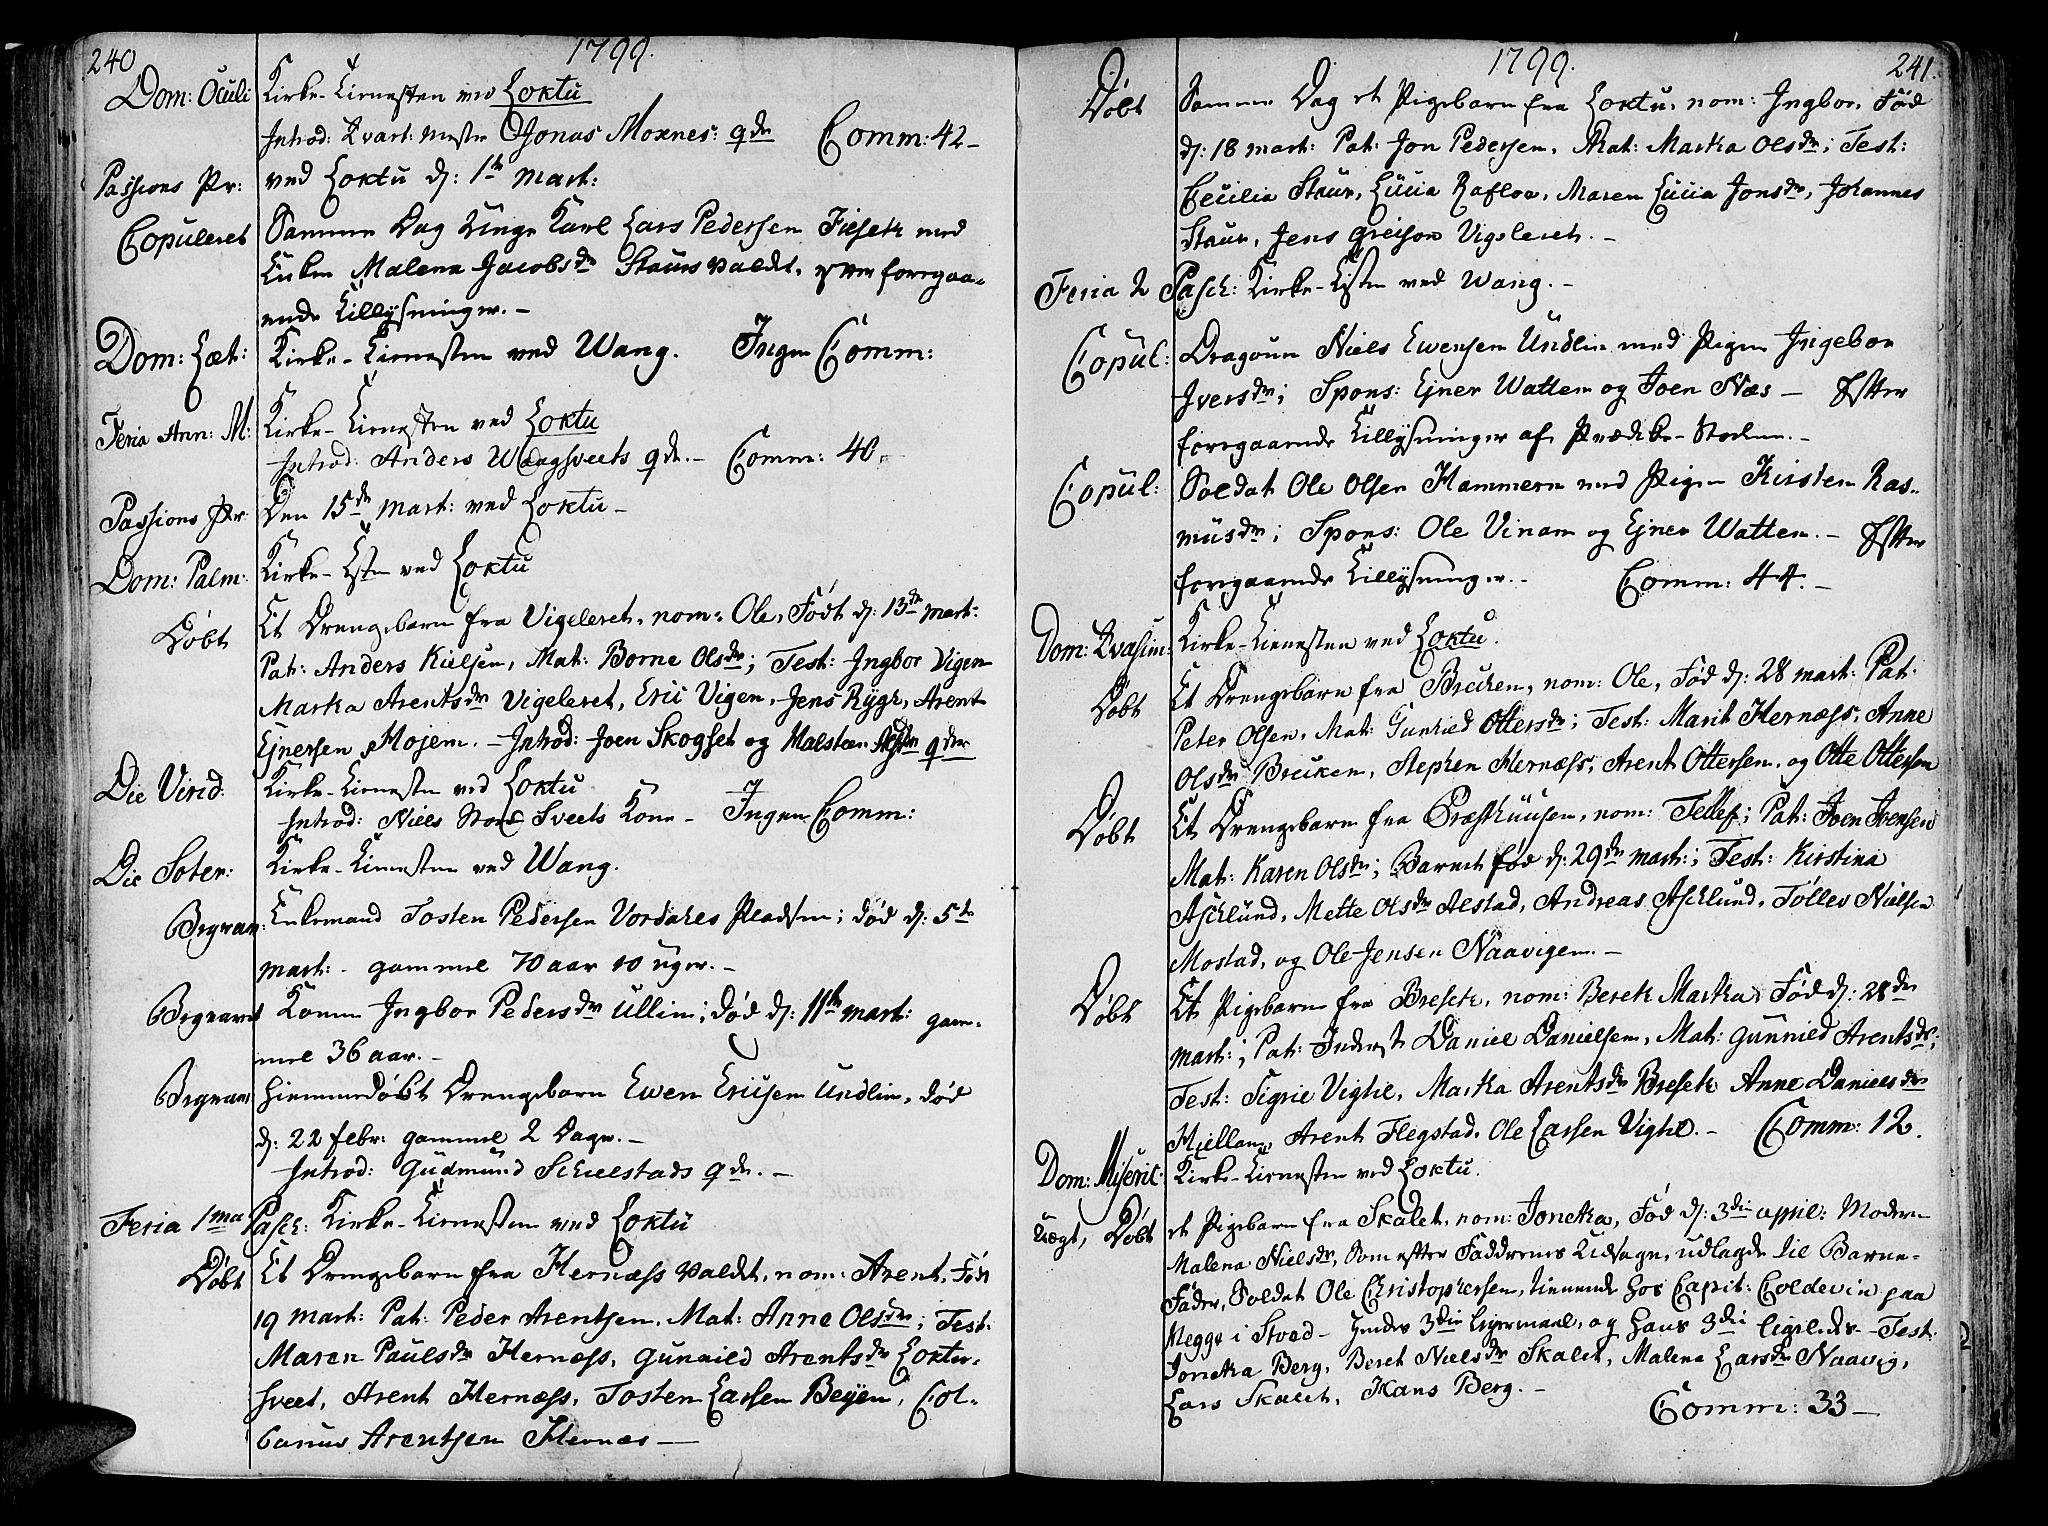 240
1799.
Dom: Oculi Kirke-Tienesten ved Loktu
Introd: Kvart: mester Jonas Moxnes: qde Comm: 42 –
Passions Pr: ved Loktu d: 1te Mart:
Copuleret Samme Dag Unge Karl Lars Pedersen Fiesek med
Enken Malena Jacobsdr Stavrs valdt, efter foregaa-
ende Tillysninger. –
Dom: Læt: Kirke-Tienesten ved Wang. Ingen Comm:
Feria Ann: M: Kirke-Tienesten ved Loktu
Introd: Anders Waagsveets qde. – Comm: 40.
Passions Pr: Den 15de Mart: ved Loktu –
Dom: Palm: Kirke-Tsten ved Loktu
Døbt Et Drengebarn fra Vigeleret, nom: Ole, Født d: 13de Mart:
Pat: Anders Kielsen, Mat: Borne Olsdr; Test: Ingbor Vigen
Marka Arentsdr Vigeleret, Eric Vigen, Jens Rygh, Arent
Ejnersen Mojem. – Introd: Joen Skogset og Halsteen qder
Die Virid: Kirke-Tienesten ved Loktu
Introd: Niels Store Sveets Kone – Ingen Comm:
Die Soter: Kirke-Tienesten ved Wang.
Begravet Enkemand Tosten Pedersen Vordahls Pladsen; død d: 5te
Mart: – gammel 70 aar 10 uger. –
Begravet Konen Ingbor Pedersdr Ullin; død d: 11te Mart: gam-
mel 36 aar. –
Begravet Hiemmedøbt Drengebarn Ewen Ericsen Undlin, død
d: 22 febr: gammel 2 Dage. –
Introd: Gudmund Schielstads qde. –
Feria 1ma Pasch: Kirke-Tienesten ved Loktu
Døbt Et Drengebarn fra Hernæss valdt, nom: Arent, Fød
19 Mart: Pat: Peder Arentsen, Mat: Anne Olsdr; Test:
Maren Paulsdr Hernæss, Gunnild Arentsdr Loktu-
sveet, Arent Hernæss, Tosten Larsen Beyen, Col-
banus Arentsen Hernæs –
1799.
241.
Døbt Samme Dag et Pigebarn fra Loktu, nom: Ingbor, Fød
d: 18 Mart: Pat: Jon Pedersen, Mat: Marka Olsdr; Test:
Cecilia Staur, Lucia Rafloe, Maren Lucia Jonsdr, Johannes
Staur, Jens Greisen Vigeleret. –
Feria 2 Pasch: Kirke-Tsten ved Wang. –
Copul: Dragoun Niels Ewensen Undlin med Pigen Ingebor
Iversdr; Spons: Ejner Wattem og Joen Næs – Efter
foregaaende Tillysninger af Prædike-Stolen. –
Copul: Soldat Ole Olsen Hammern med Pigen Kirsten Ras-
musdr; Spons: Ole Vinam og Ejner Wattem. – Efter
foregaaende Tillysninger. – Comm: 44. –
Dom: Kvasim: Kirke-Tienesten ved Loktu.
Døbt Et Drengebarn fra Breiken, nom: Ole, Fød d: 28 Mart: Pat:
Peter Olsen, Mat: Gunnild Ottersdr; Test: Marit Hernæss, Anne
Olsdr Breiken, Stephen Hernæss, Arent Ottersen, og Otte Ottersen
Døbt Et Drengebarn fra Præsthuusen, nom: Tellef; Pat: Joen Joensen
Mat: Karen Olsdr; Barnet fød d: 29de Mart:; Test: Kirstina
Aschlund, Mette Olsdr Alstad, Andreas Aschlund, Tøllev Nielsen
Mostad, og Ole Jensen Naavigen. –
Døbt Et Pigebarn fra Bresek, nom: Beret Marka. Fød d: 28de
Mart:; Pat: Inderst Daniel Danielsen, Mat: Gunnild Arentsdr;
Test: Sigrie Viglie, Marka Arentsdr Bresek Anne Danielsdr
Hiellan, Arent Flegstad, Ole Larsen Viglie. – Comm: 12.
Dom: Miseric: Kirke-Tienesten ved Loktu.
Uægt, Døbt et Pigebarn fra Skalet, nom: Joneka, Fød d: 3die april: Moderen
Malena Nielsdr, Som efter Faddrenes Udsagn, udlagde til Barne-
Fader, Soldat Ole Christophersen, tienende hos Capit: Coldevin paa
Megge i Stod – Hendes 3die Leyermaal, og hans 3die ligeledes – Test:
Joneka Berg, Beret Nielsdr Skalet, Malena Larsdr Naavig,
Lars Skalet, Hans Berg. –
Comm: 33 –